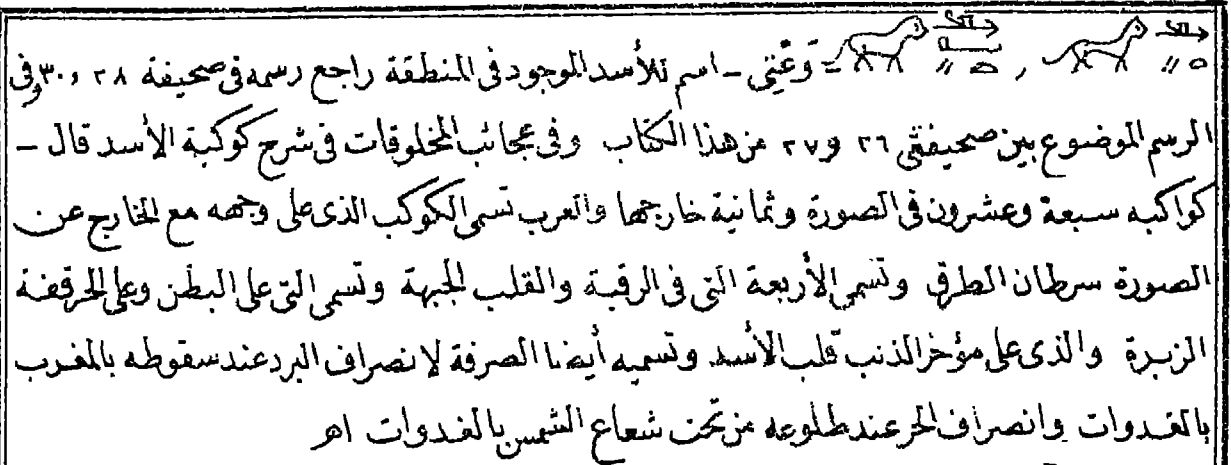 = وَعْتِي - اسم للأسد الموجود فى المنطقة راجع رسمه فى صحيفة ٢٨ و ٣٠ وفى
الرسم الموضوع بين صحيفتى ٢٦ و ٢٧ من هذا الكتاب وفى عجائب المخلوقات فى شرح كوكبة الأسد قال -
كواكبه سبعة وعشرون فى الصورة وثمانية خارجها والعرب تسمى الكوكب الذى على وجهه مع الخارج عن
الصورة سرطان الطرف وتسمى الأربعة التى فى الرقبة والقلب الجبهة وتسمى التى على البطن وعلى الحرقفة
الزبرة والذى على مؤخر الذنب قلب الأسد وتسميه أيضا الصرفة لانصراف البرد عند سقوطه بالمغرب
بالغدوات وانصراف الحر عند طلوعه من تحت شعاع الشمس بالغدوات اهـ